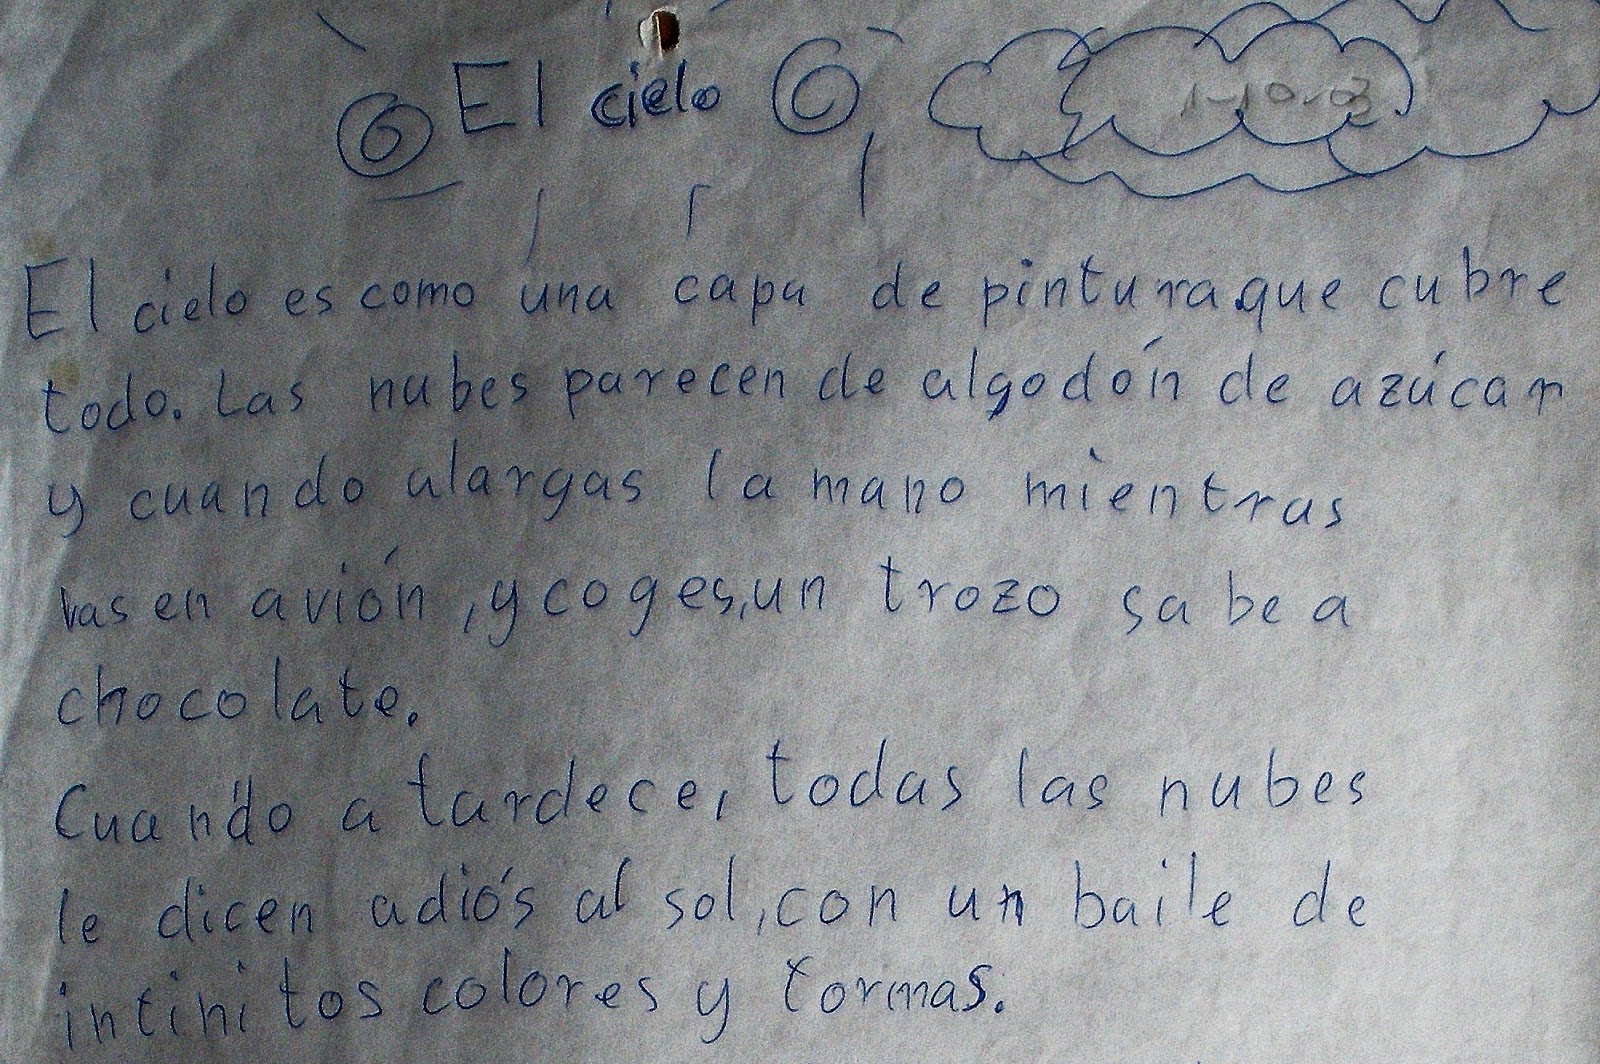 El cielo
1-10-03
El cielo es como una capa de pintura que cubre
todo. Las nubes parecen de algodón de azúcar
y cuando alargas la mano mientras
vas en avión, y coges, un trozo sabe a
chocolate.
Cuando atardece, todas las nubes
le dicen adiós al sol, con un baile de
infinitos colores y formas.